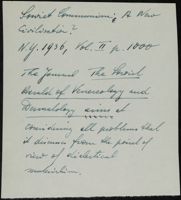 Soviet Communism; A New
Civilisation?
N.Y. 1936, Vol. II p. 1000
The Journal The Soviet
Herald of Venereology and
Dermatology aims at
considering all problems that
it discusses from the point of
view of dialectical
materialism.